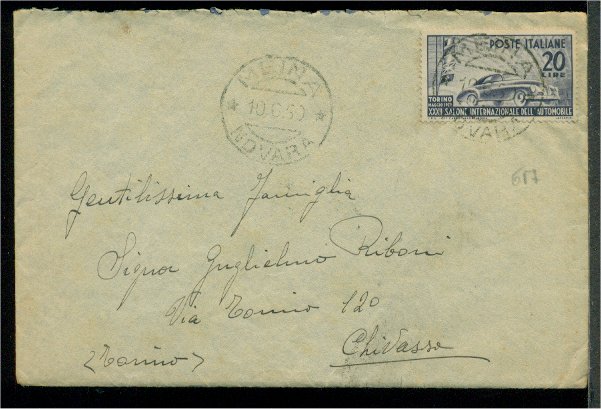 POSTE ITALIANE
20
LIRE
TORINO
XXXII SALONE INTERNAZIONALE DELL'AUTOMOBILE
MEINA
NOVARA
MEINA
NOVARA
617
Gentilissima Famiglia
Signor Guglielmo Riboni
Via Torino 120
Chivasso
(Torino)